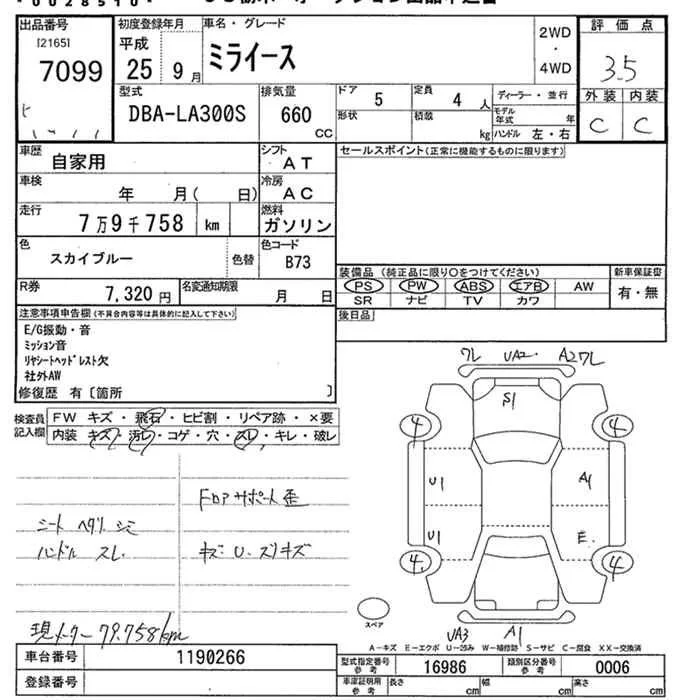 出品番号 初度登録年月 車名・グレード 2WD・4WD 評価点
[2165] 7099 平成 25 9月 ミライース 3.5
型式 DBA-LA300S 排気量 660 CC
ドア 5 定員 4 人 ディーラー・並行
形状 積載 kg モデル年式 年 ハンドル 左・右
外装 内装
C C
車歴 自家用 シフト AT セールスポイント(正常に機能するものに限ります)
車検 年 月( 日) 冷房 AC
走行 7万9千758 km 燃料 ガソリン
色 スカイブルー 色替 色コード B73
装備品(純正品に限り○をつけてください) 新車保証書
PS PW ABS エアB AW 有・無
SR ナビ TV カワ
R券 7,320円 名変通知期限 月 日
後日品
注意事項申告欄(不具合内容等は具体的に記入して下さい)
E/G振動・音
ミッション音
リヤシートヘッドレスト欠
社外AW
修復歴 有〔箇所 〕
検査員記入欄 FW キズ・飛石・ヒビ割・リペア跡・×要
内装 キズ・汚レ・コゲ・穴・スレ・キレ・破レ
ワレ UA2 A2ワレ
S1
4 4
U1 A1
U1 E
4 4
スペア
UA3 A1
Fロア サポート歪
シート ヘタリ シミ
ハンドル スレ
キズ U. ズリキズ
現メーター 79.758km
A-キズ E-エクボ U-凹み W-補修跡 S-サビ C-腐食 XX-交換済
車台番号 1190266
型式指定番号参考 16986 類別区分番号参考 0006
登録番号
車庫証明用参考 長さ cm 幅 cm 高さ cm